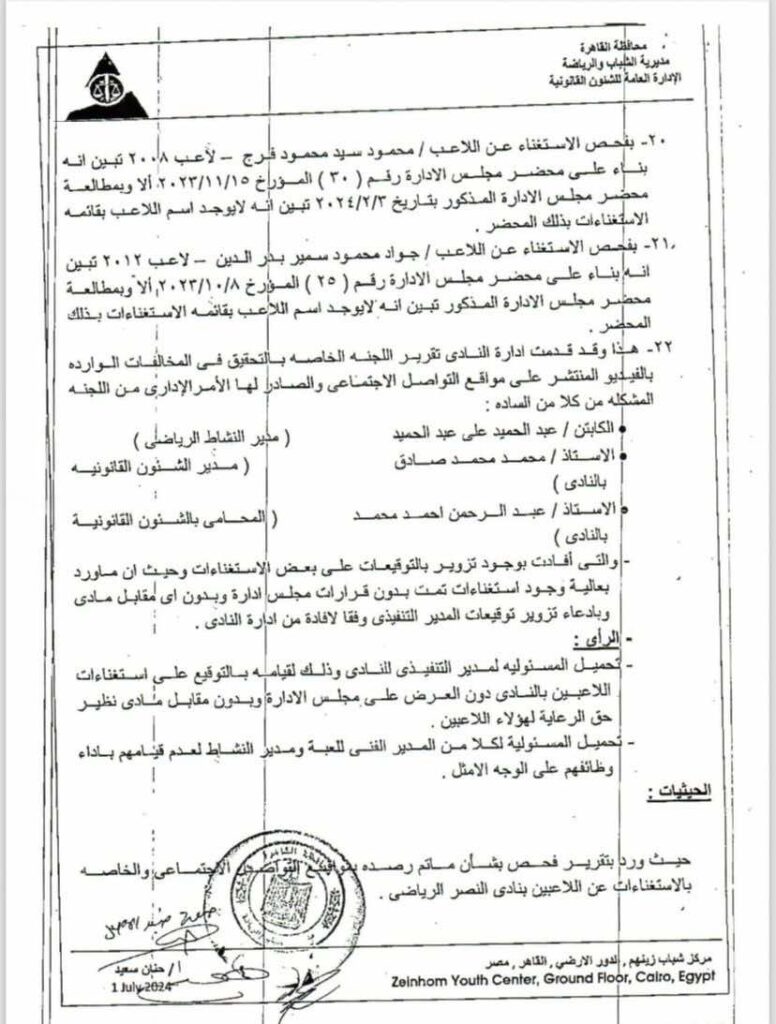 محافظة القاهرة
مديرية الشباب والرياضة
الإدارة العامة للشئون القانونية
٢٠- بفحص الاستغناء عن اللاعب / محمود سيد محمود فرج – لاعب ٢٠٠٨ تبين انه
بناء على محضر مجلس الادارة رقم ( ٣٠ ) المؤرخ ٢٠٢٣/١١/١٥ ألا وبمطالعة
محضر مجلس الادارة المذكور بتاريخ ٢٠٢٤/٢/٣ تبين انه لايوجد اسم اللاعب بقائمه
الاستغناءات بذلك المحضر .
٢١- بفحص الاستغناء عن اللاعب / جواد محمود سمير بدر الدين – لاعب ٢٠١٢ تبين
انه بناء على محضر مجلس الادارة رقم ( ٢٥ ) المؤرخ ٢٠٢٣/١٠/٨ ألا وبمطالعة
محضر مجلس الادارة المذكور تبين انه لايوجد اسم اللاعب بقائمه الاستغناءات بذلك
المحضر .
٢٢- هذا وقد قدمت ادارة النادى تقرير اللجنه الخاصه بالتحقيق فى المخالفات الوارده
بالفيديو المنتشر على مواقع التواصل الاجتماعى والصادر لها الأمر الإدارى من اللجنه
المشكله من كلا من الساده :
• الكابتن / عبد الحميد على عبد الحميد ( مدير النشاط الرياضى )
• الاستاذ / محمد محمد صادق ( مدير الشئون القانونيه
بالنادى )
• الاستاذ / عبد الرحمن احمد محمد ( المحامى بالشئون القانونية
بالنادى )
- والتى أفادت بوجود تزوير بالتوقيعات على بعض الاستغناءات وحيث ان ماورد
بعالية وجود استغناءات تمت بدون قرارات مجلس ادارة وبدون اى مقابل مادى
وبادعاء تزوير توقيعات المدير التنفيذى وفقا لافادة من ادارة النادى .
- الرأى :
- تحميل المسئوليه لمدير التنفيذى للنادى وذلك لقيامه بالتوقيع على استغناءات
اللاعبين بالنادى دون العرض على مجلس الادارة وبدون مقابل مادى نظير
حق الرعاية لهؤلاء اللاعبين .
- تحميل المسئولية لكلا من المدير الفنى للعبة ومدير النشاط لعدم قيامهم باداء
وظائفهم على الوجه الامثل .
الحيثيات :
حيث ورد بتقرير فحص بشأن ماتم رصده بمواقع التواصل الاجتماعى والخاصه
بالاستغناءات عن اللاعبين بنادى النصر الرياضى .
أ / حنان سعيد
1 July 2024
مركز شباب زينهم , لدور الارضي , القاهر , مصر
Zeinhom Youth Center, Ground Floor, Cairo, Egypt